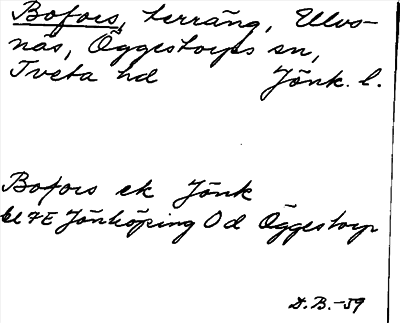 Bofors, terräng, Ulvs-
näs, Öggestorps sn,
Tveta hd Jönk. l.
Bofors ek Jönk
bl 7E Jönköping Od Öggestorp
D.B.-59